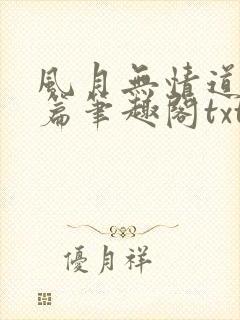 風月無情道
篇筆趣閣txt
優月祥